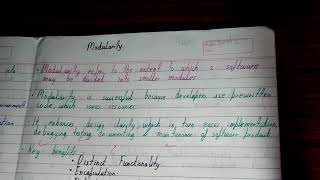 Modularity
into
• Modularity refers to the extent to which a software
may be divided into smaller modules
• Modularity is successful because developers use prewritten
code, which saves resources
• It enhances design clarity, which in turn eases implementation,
debugging, testing, documenting & maintenance of software product.
• Key benefits
- Distinct Functionality
- Encapsulation